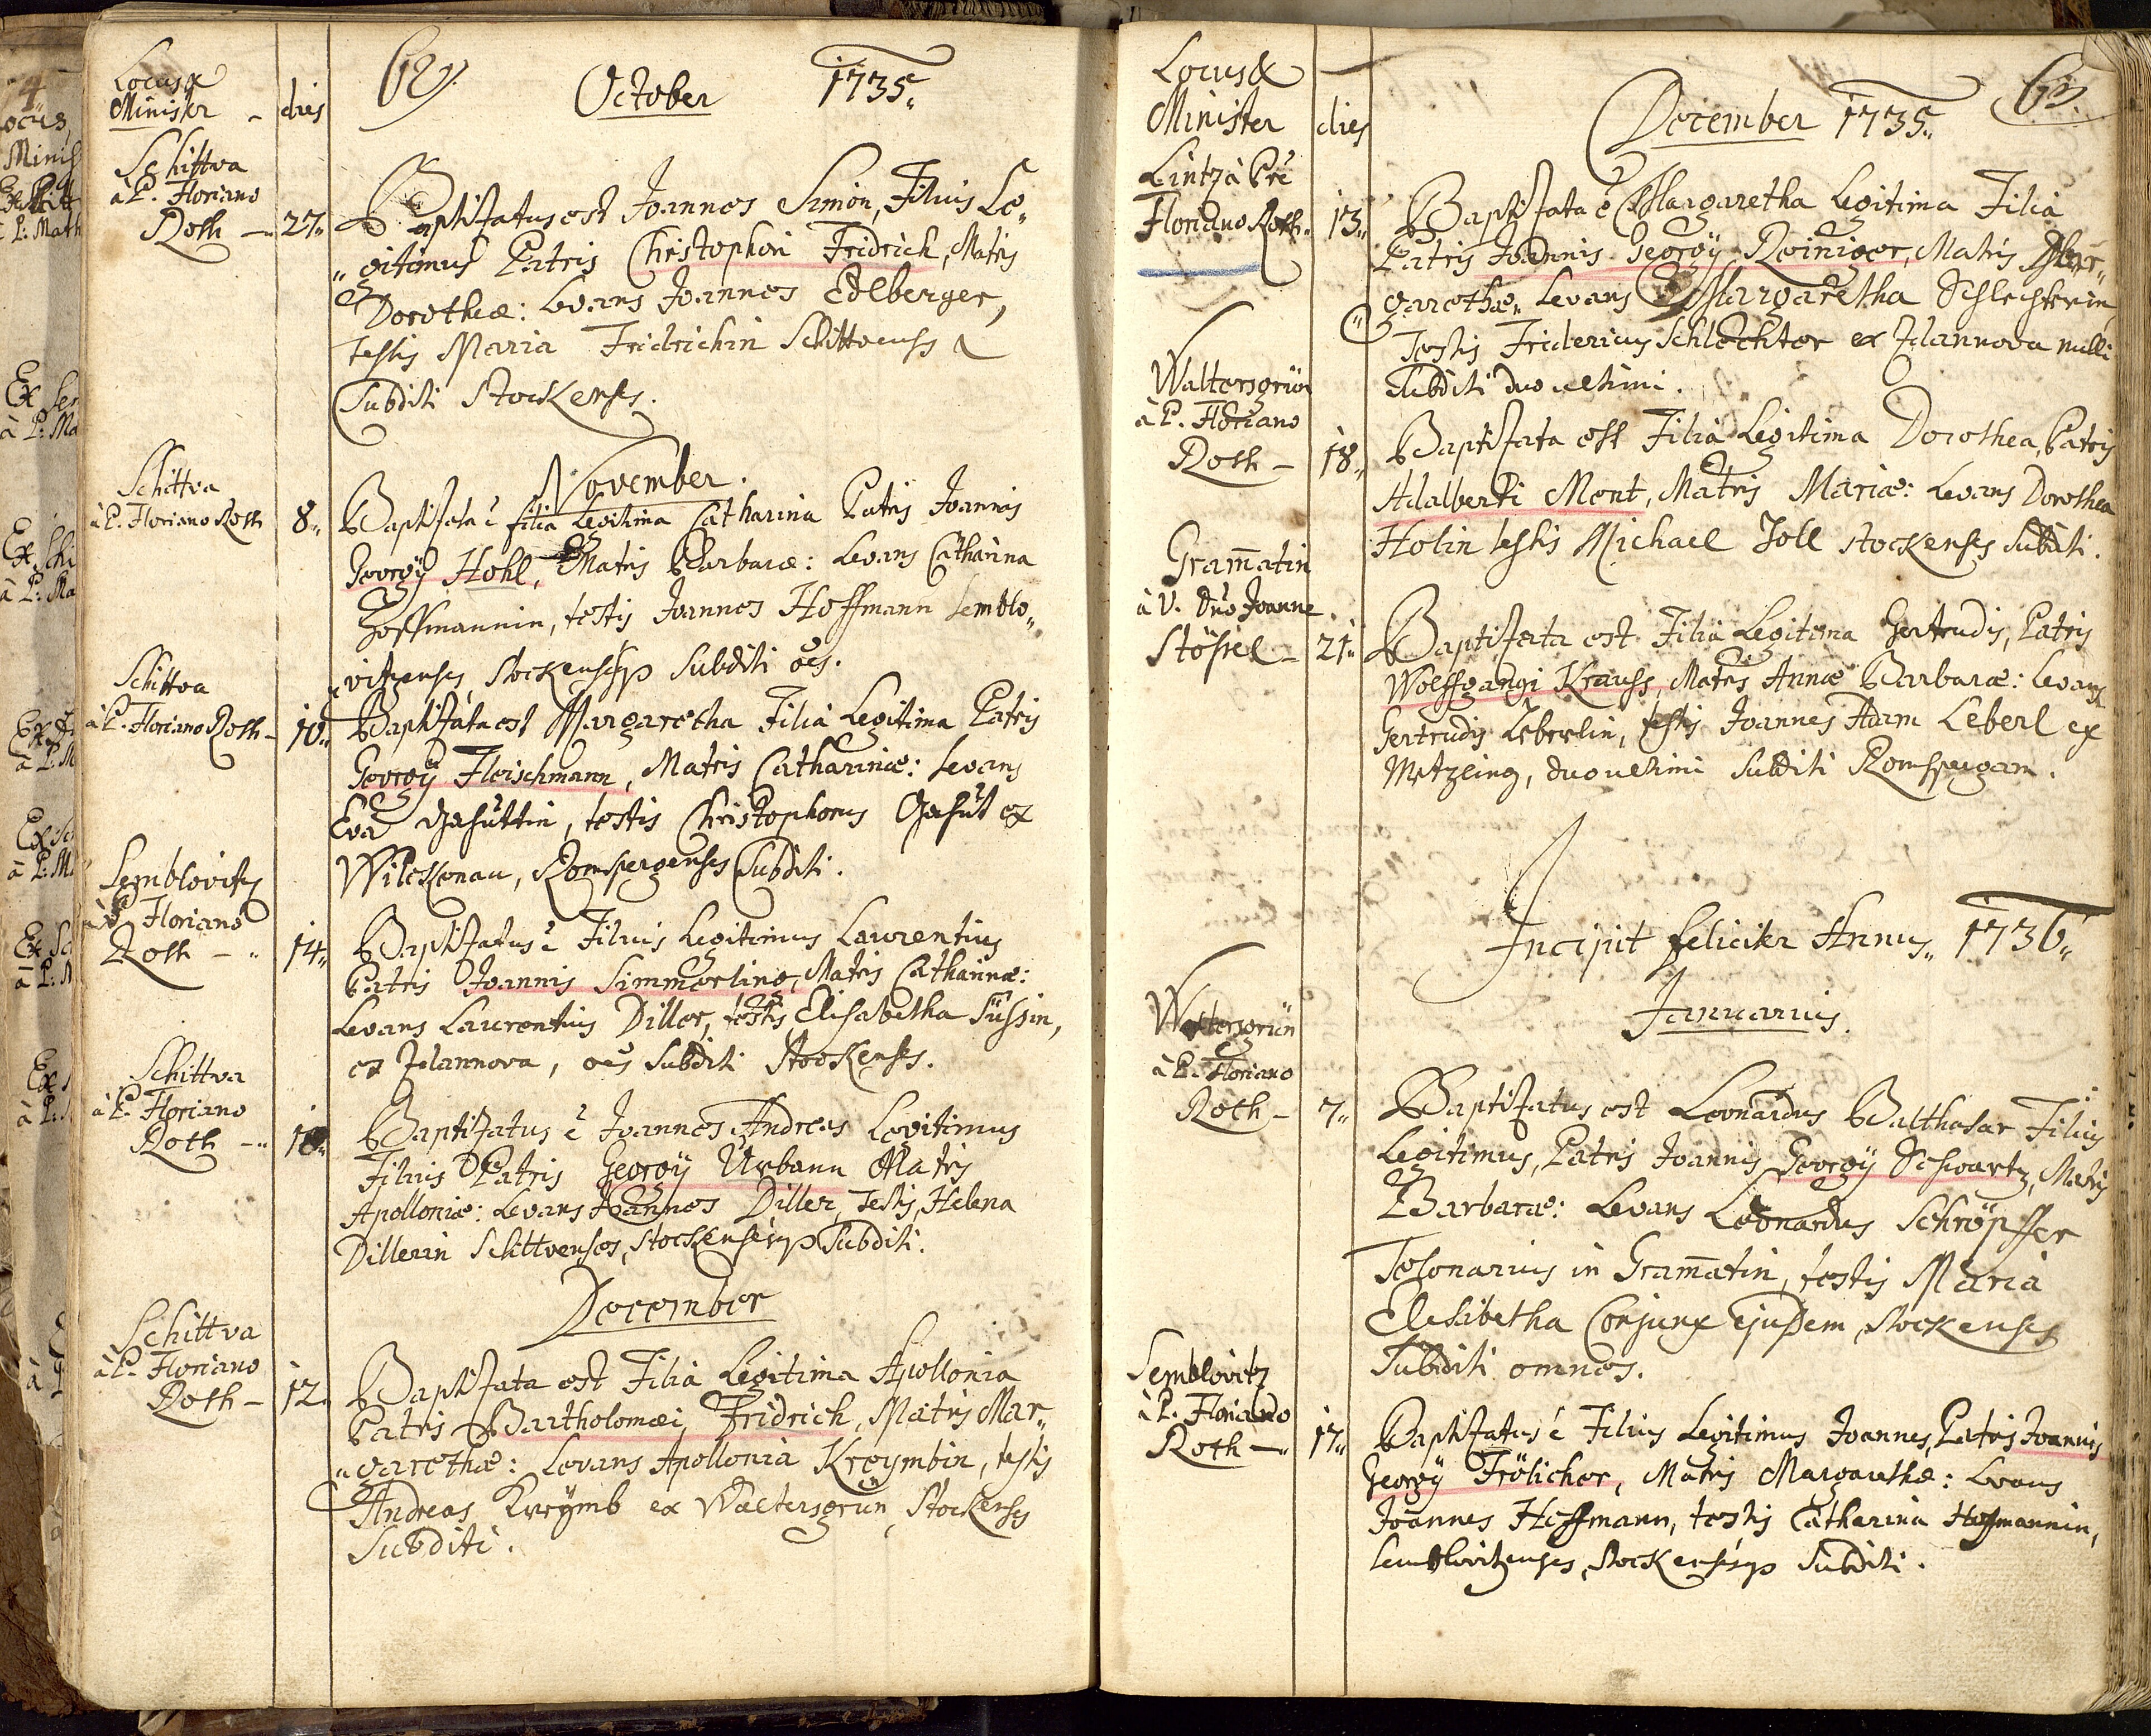 Locus &
Minister
dies
62.
October 1735.
Schittva
à P. Floriano
Roth
27.
Baptisatus est Joannes Simon, Filius Le,,
,,gitimus Patris Christophori Fridrich, Matris
Dorotheæ: Levans Joannes Edlberger,
testis Maria Fridrichin Schittvenses &
Subditi Stockenses.
November.
Schittva
à P. Floriano Roth
8.
Baptisata è filia Legitima Catharina Patris Joannis
Georgÿ Hohl, Matris Barbaræ: Levans Catharina
Hoffmannin, testis Joannes Hoffmann Semblo,,
vitzenses, Stockensesq Subditi oes.
Schittva
à P. Floriano Roth
10.
Baptisata est Margaretha Filia Legitima Patris
Georgÿ Fleischmann, Matris Catharinæ: Levans
Eva, testis Christophorus ex
Wilckenau, Romspergenses Subditi.
Semblovitz
à P. Floriano
Roth
14.
Baptisatus è Filius Legitimus Laurentius
Patris Joannis Simmerling, Matris Catharinæ:
Levans Laurentius Diller, testis Elisabetha Süssin,
ex Plannova, oes Subditi Stockenses.
Schittva
à P. Floriano
Roth
18.
Baptisatus è Joannes Andreas Legitimus
Filius Patris Georgÿ Urbann Matris
Apolloniæ: Levans Joannes Diller, Testis, Helena
Dillerin Schittvenses, Stockensesq Subditi.
December
Schittva
à P. Floriano
Roth
12.
Baptisata est Filia Legitima Apollonia
Patris Bartholomæi Fridrich, Matris Mar,,
,,garethæ: Levans Apollonia Kreymbin, testis
Andreas Kreÿmb ex Waltersgrün, Stockenses
Subditi.
Locus &
Minister
dies
December 1735.
63.
Lintz à Pre
Floriano Roth
13.
Baptisata è Margaretha Legitima Filia
Patris Joannis Georgÿ Reiniger, Matris Mar,,
garethæ. Levans Margaretha Schlechterin,
Testis Fridericus Schlechter ex Plannova nulli
Subditi duo ultimi.
Waltersgrün
à P. Floriano
Roth
18.
Baptisata est Filia Legitima Dorothea, Patris
Adalberti Ment, Matris Mariæ: Levans Dorothea
Holin testis Michael Joll Stockenses Subditi.
Gram̄atin
à V. Dno Joanne
Stössel
21.
Baptisata est Filia Legitima Gertrudis, Patris
Wolffgangi Krauss, Matris Annæ Barbaræ: Levans
Gertrudis Leberlin, testis Joannes Adam Leberl ex
Metzling, duo ultimi Subditi
Incipit feliciter Annus,, 1736,,
Januarius.
Waltersgrün
à P. Floriano
Roth
7.
Baptisatus est Leonardus Balthasar Filius
Legitimus, Patris Joannis Georgÿ Schwartz, Matris
Barbaræ: Levans Leonardus Schröpffer
Telonarius in Gram̄atin, testis Maria
Elesibetha Conjunx Ejusdem, Stockenses
Subditi omnes.
Semblovitz
à P. Floriano
Roth
17.
Baptisatus è Filius Legitimus Joannes, Patris Joannis
Georgÿ Frölicher, Matris Margarethæ: Levans
Joannes Hoffmann, testis Catharina Hoffmannin,
Semblovitzenses, Stockensesq Subditi.